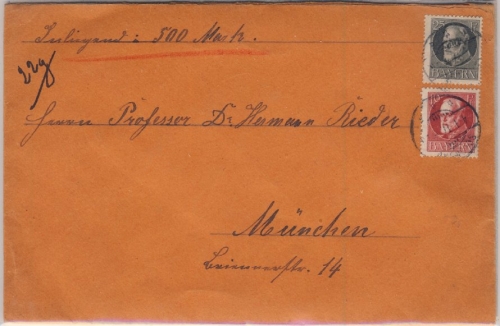 Inliegend: 500 Mark.
22g
Herrn Professor Dr. Hermann Rieder
München
Briennerstr. 14
25
BAYERN
BAYERN